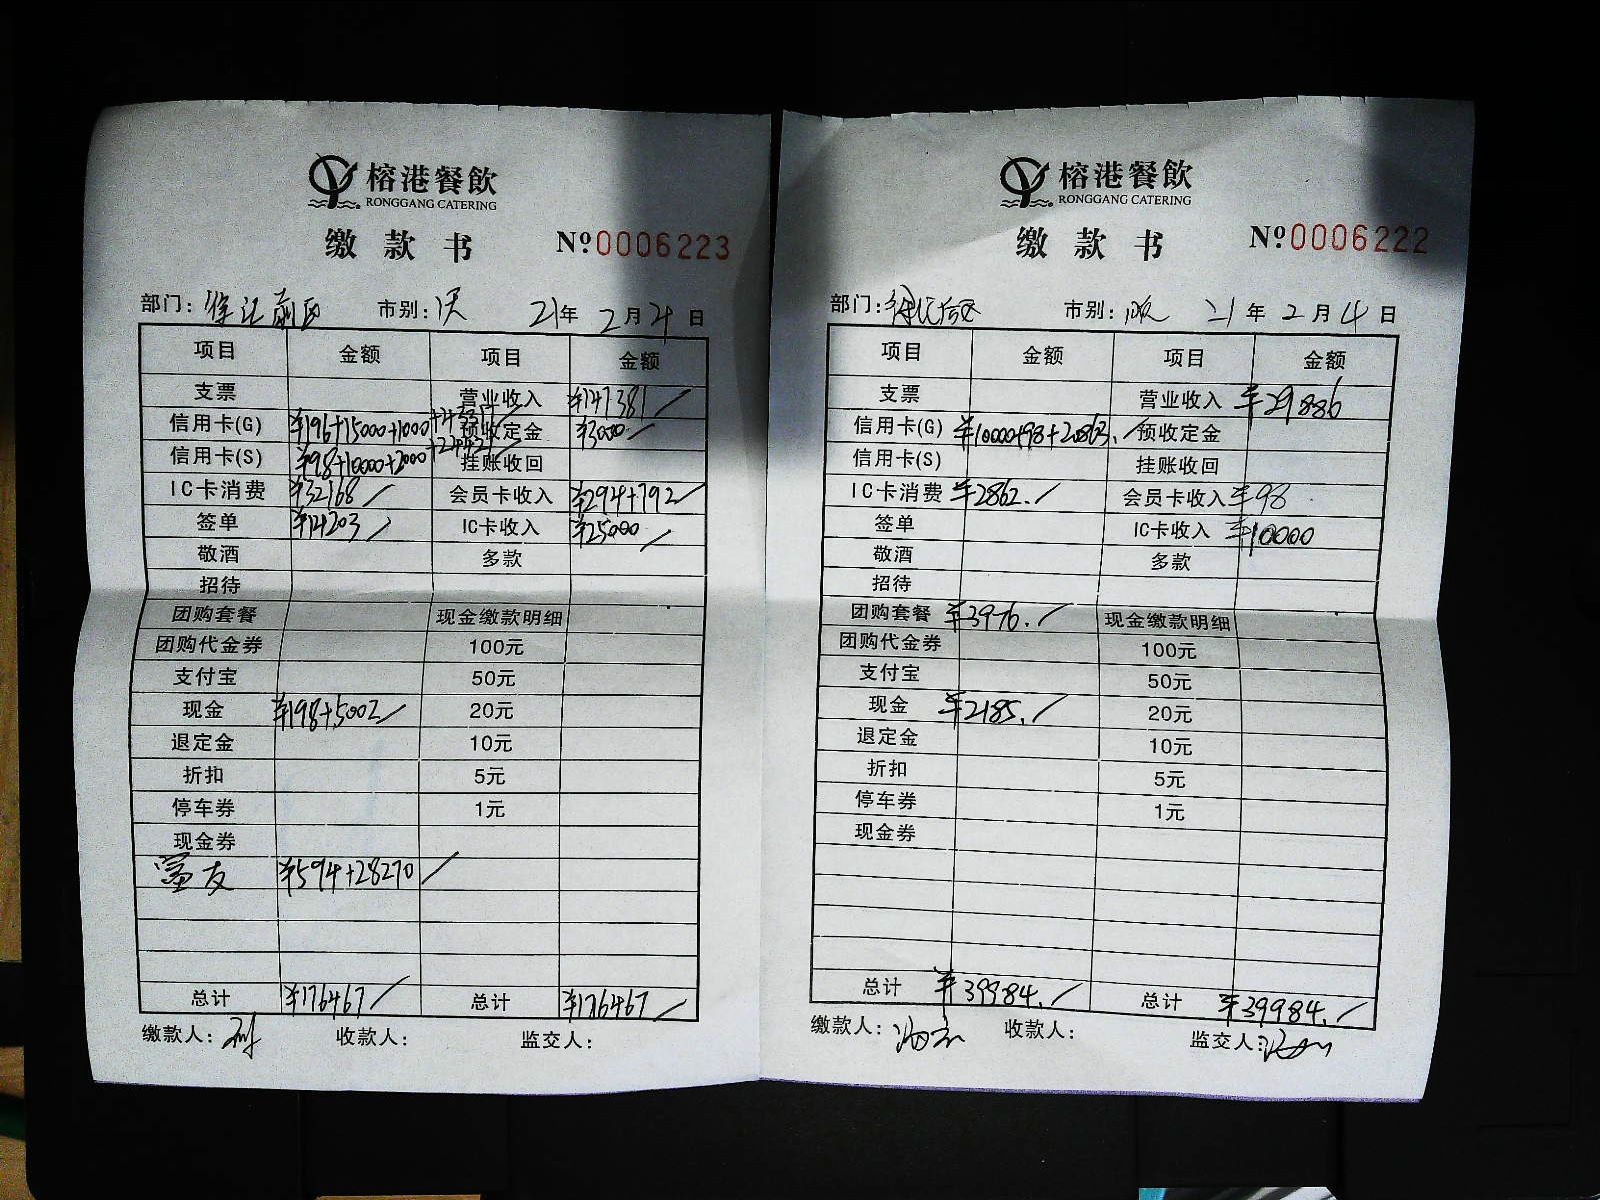 榕港餐飲
RONGGANG CATERING
缴 款 书 Nº0006223
部门: 徐记前区 市别: 21年 2月4日
项目 金额 项目 金额
支票 营业收入 ¥147381
信用卡(G) ¥196+15000+1000 预收定金 ¥3000
信用卡(S) ¥98+10000+2000 挂账收回
IC卡消费 ¥32168 会员卡收入 ¥294+792
签单 ¥14203 IC卡收入 ¥25000
敬酒 多款
招待
团购套餐 现金缴款明细
团购代金券 100元
支付宝 50元
现金 ¥198+5002 20元
退定金 10元
折扣 5元
停车券 1元
现金券
富友 ¥594+28270
总计 ¥176467 总计 ¥176467
缴款人: 收款人: 监交人:
榕港餐飲
RONGGANG CATERING
缴 款 书 Nº0006222
部门: 市别: 晚 21年 2月4日
项目 金额 项目 金额
支票 营业收入 ¥29886
信用卡(G) ¥10000+98+20863. 预收定金
信用卡(S) 挂账收回
IC卡消费 ¥2862. 会员卡收入 ¥98
签单 IC卡收入 ¥10000
敬酒 多款
招待
团购套餐 ¥3976. 现金缴款明细
团购代金券 100元
支付宝 50元
现金 ¥2185. 20元
退定金 10元
折扣 5元
停车券 1元
现金券
总计 ¥39984. 总计 ¥39984.
缴款人: 收款人: 监交人: